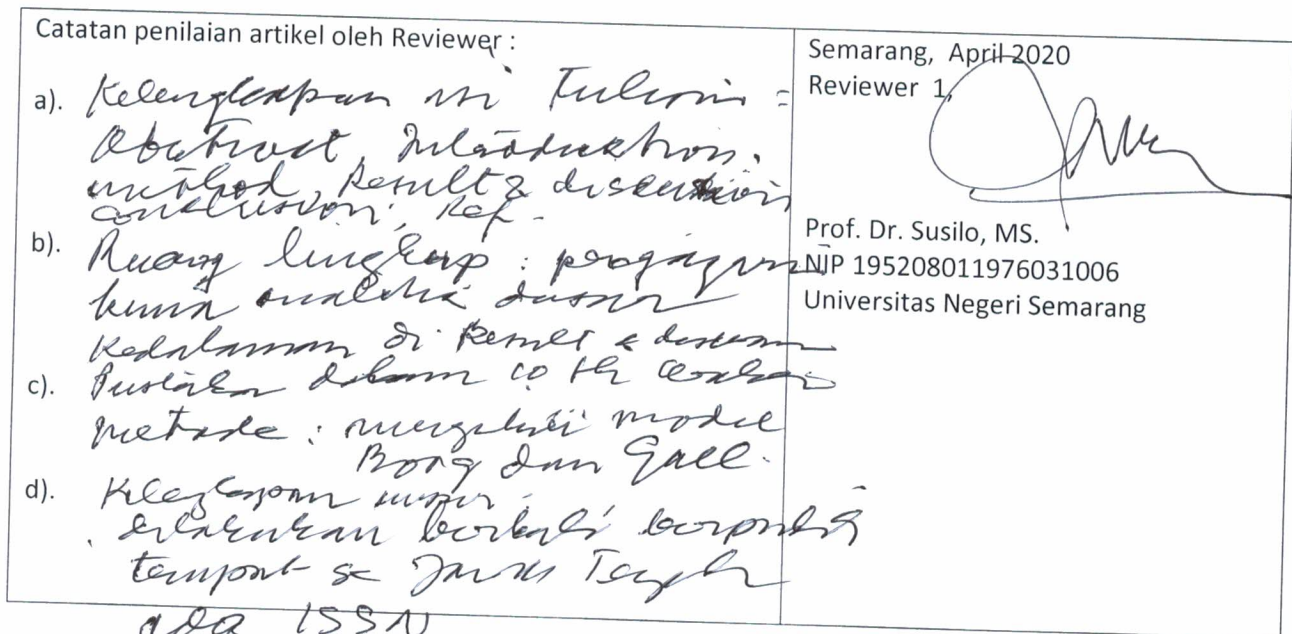 Catatan penilaian artikel oleh Reviewer :
a). Kelengkapan isi Tulisan =
Abstract, Introduktion.
method, Result & discussion
conclusion, Ref.
b). Ruang lingkup :
kimia analitik dasar
Kedalaman di Result &
c). Pustaka dalam 10 th
metode : model
Borg dan Gall.
d). Kelengkapan unsur
dilakukan berkali
tempat se Jawa Tengah
ada ISSN
Semarang, April 2020
Reviewer 1,
Prof. Dr. Susilo, MS.
NIP 195208011976031006
Universitas Negeri Semarang